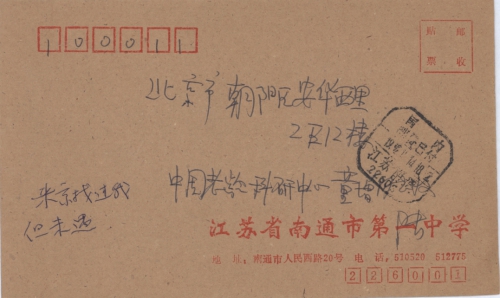 100011
贴 邮
票 收
北京市朝阳区安华里
2区12楼
中国老 科研中心董
陆
来京找过我
但未遇
江苏
江苏省南通市第一中学
地 址：南通市人民西路20号 电 话：510520 512775
226001